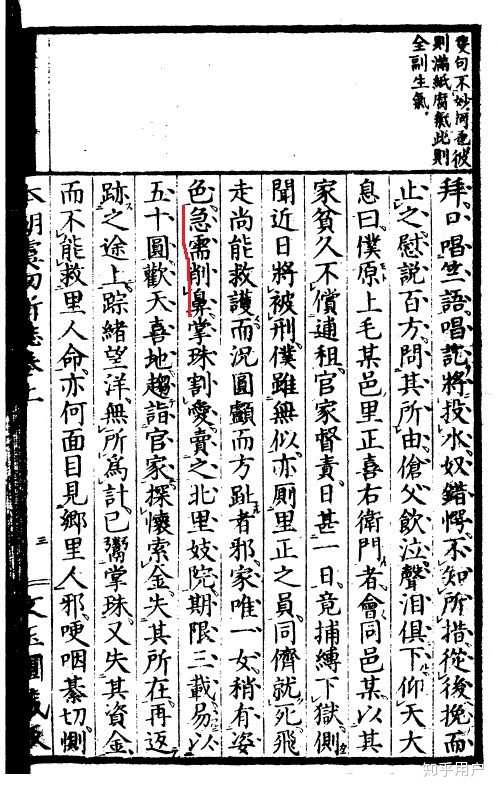 句不妙何也彼
則滿紙腐氣此則
全副生氣
拜口唱竺語唱訖將投水奴錯愕不知所措從後挽而
止之慰説百方問其所由傖父飲泣聲泪俱下仰天大
息曰僕原上毛某邑里正喜右衛門者會同邑某以其
家貧久不償逋租官家督責日甚一日竟捕縛下獄側
聞近日將被刑僕雖無似亦厠里正之員同儕就死飛
走尚能救護而況圓顱而方趾者邪家唯一女稍有姿
色急需削鼻掌珠割愛賣之北里妓院期限三載易以
五十圓歡天喜地趨詣官家探懷索金失其所在再返
跡之途上踪緒望洋無所爲計已鬻掌珠又失其資金
而不能救里人命亦何面目見鄉里人邪哽咽綦切惻
本朝虞初新誌卷上 三 文玉圃藏版
知乎用户